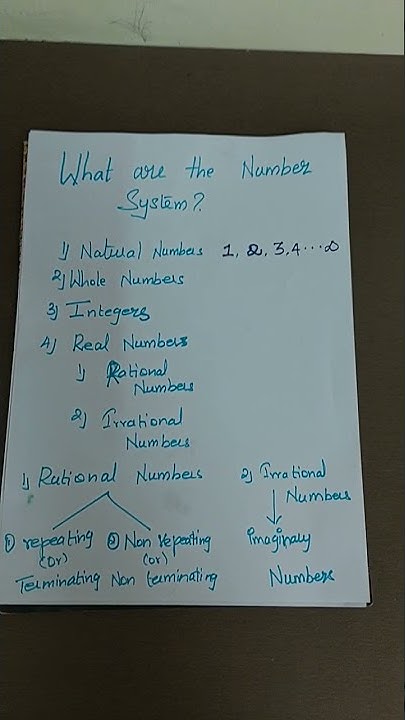 What are the Number
System?
1) Natural Numbers 1, 2, 3, 4 ... ∞
2) Whole Numbers
3) Integers
4) Real Numbers
1) Rational
Numbers
2) Irrational
Numbers
1) Rational Numbers
① repeating
(or)
Terminating
② Non repeating
(or)
Non terminating
2) Irrational
Numbers
imaginary
Numbers